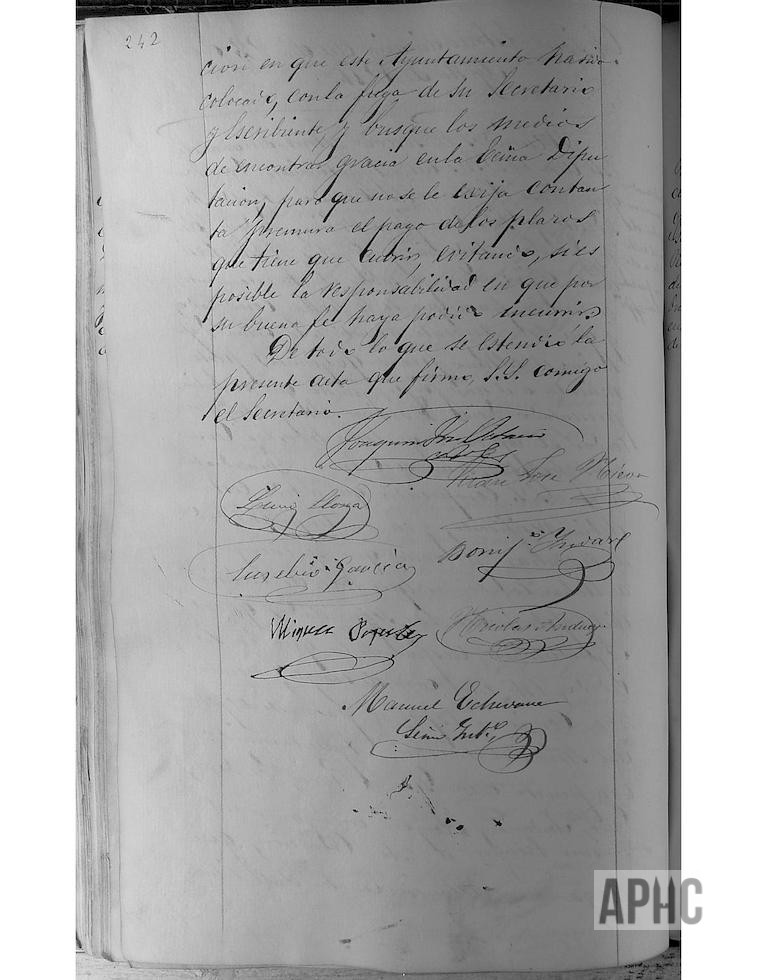 242
ción en que este Ayuntamiento ha sido
colocado, con la fuga de su Secretario
y Escribiente, y busque los medios
de encontrar gracia en la Exma Dipu
tacion, para que no se le exija con tan
ta premura el pago de los plazos
que tiene que cubrir, evitando, si es
posible la responsabilidad en que por
su buena fe haya podido incurrir.
De todo lo que se estendió la
presente acta que firma S.S. comigo
el Secretario.
Joaquin
Juan Jose
Eusebio Garcia
Miguel
Nicolas
Manuel Echevarre